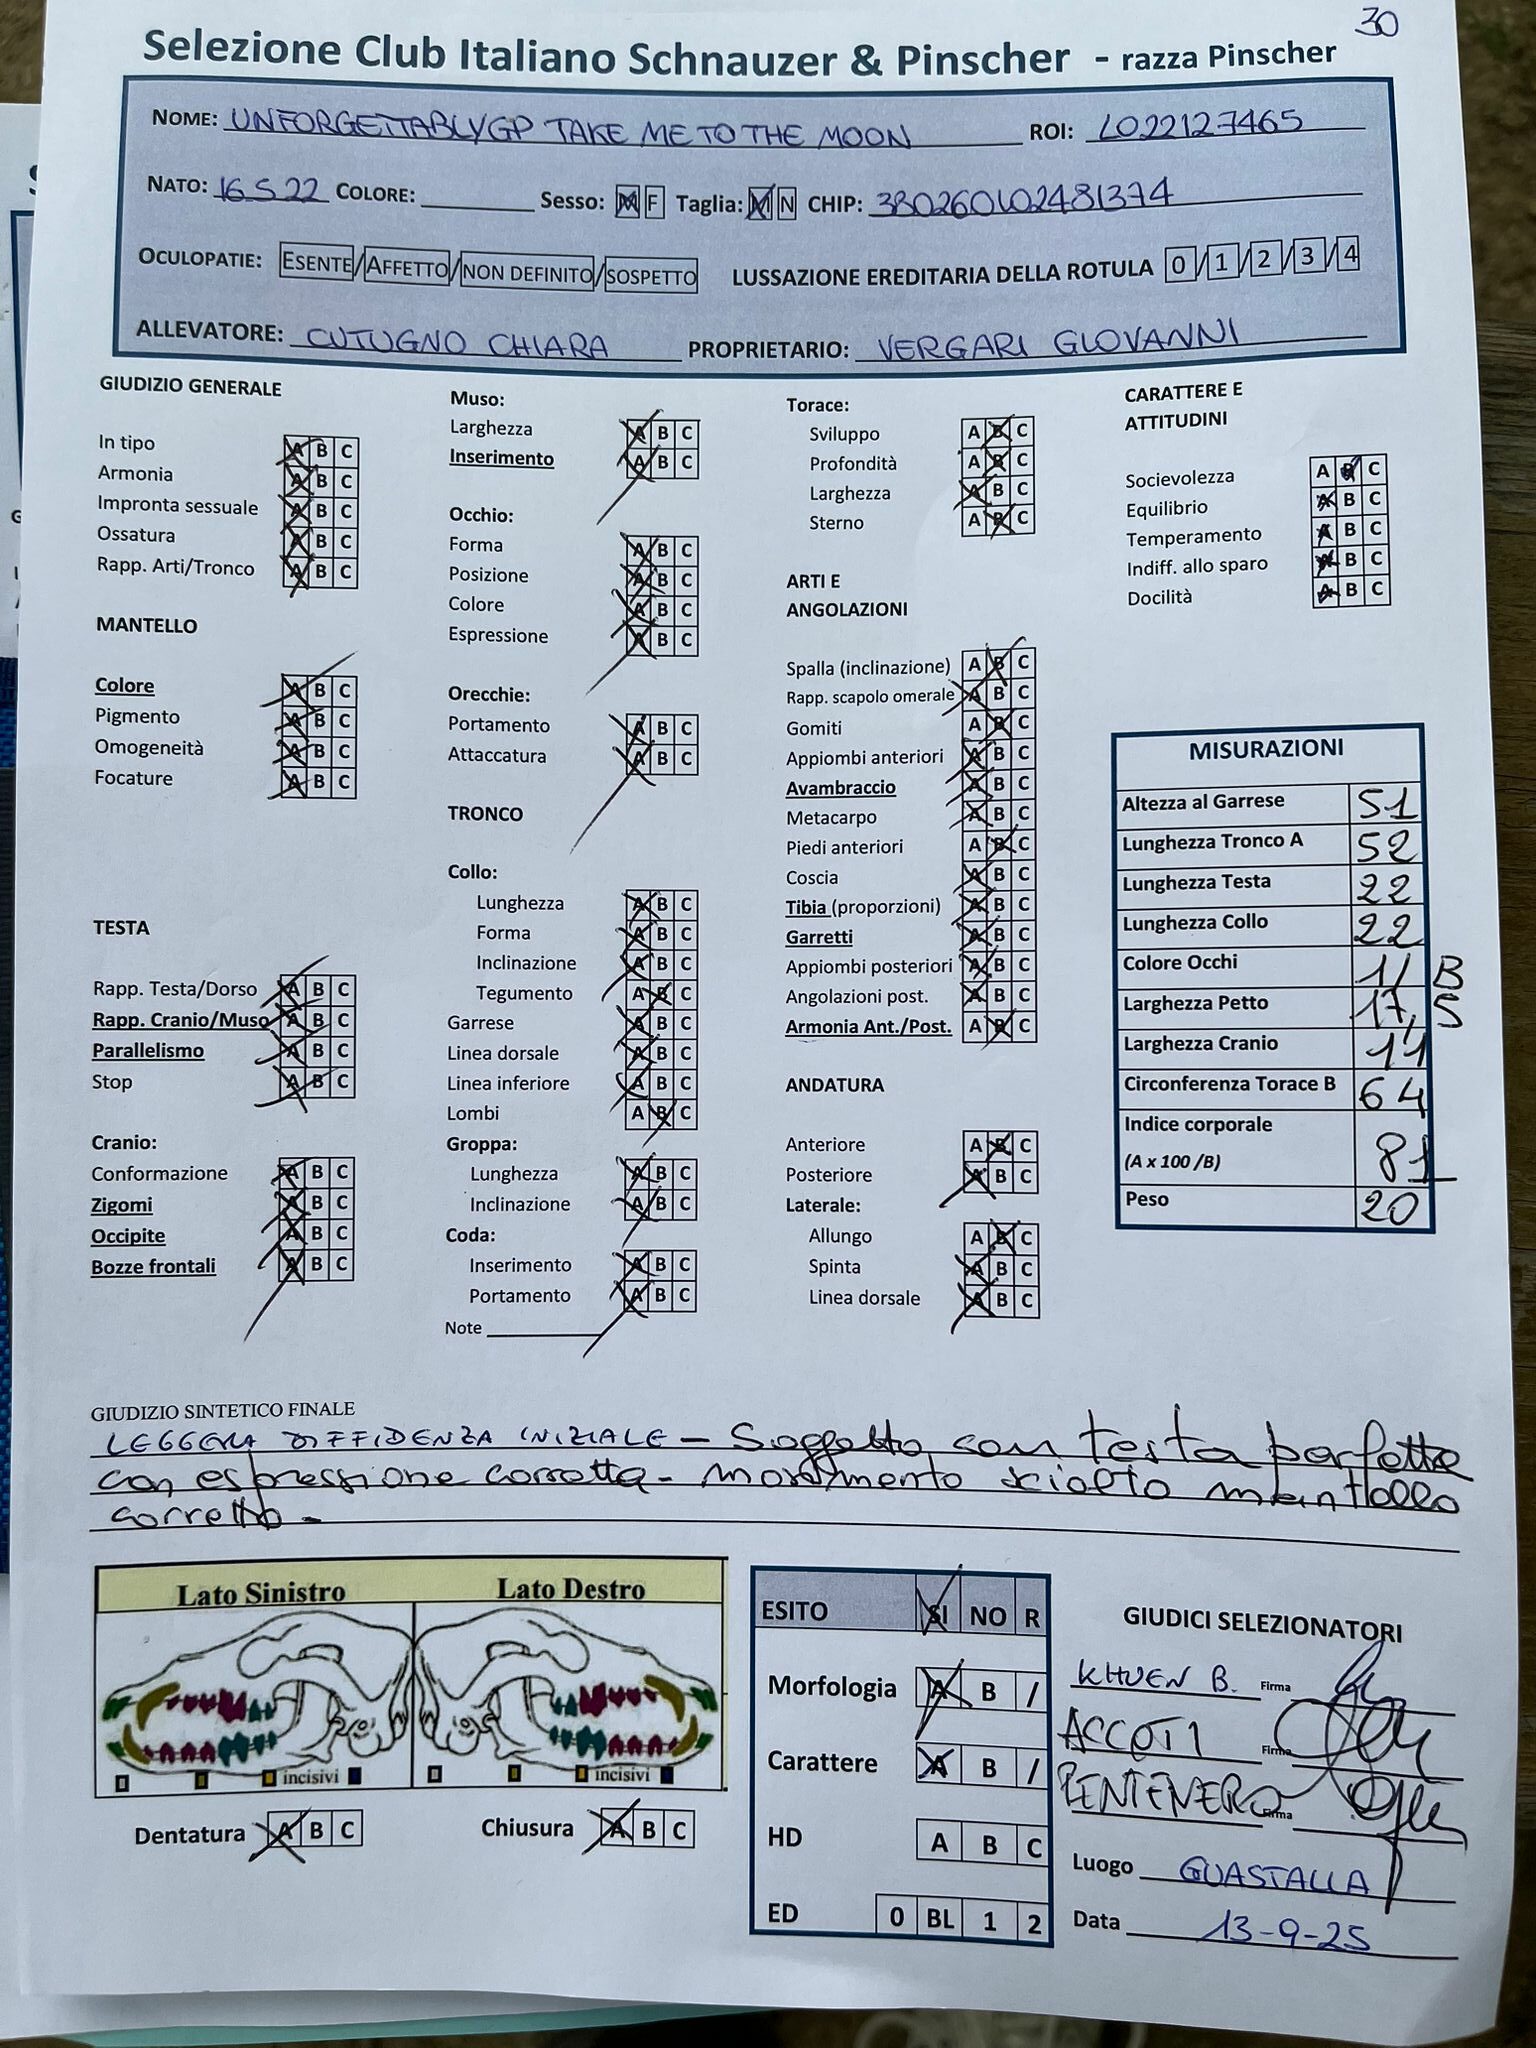 30
Selezione Club Italiano Schnauzer & Pinscher - razza Pinscher
NOME: UNFORGETTABLYGP TAKE ME TO THE MOON ROI: LO22127465
NATO: 16.5.22 COLORE: Sesso: M F Taglia: M N CHIP: 380260102481374
OCULOPATIE: ESENTE/AFFETTO/NON DEFINITO/SOSPETTO LUSSAZIONE EREDITARIA DELLA ROTULA 0/1/2/3/4
ALLEVATORE: CUTUGNO CHIARA PROPRIETARIO: VERGARI GIOVANNI
GIUDIZIO GENERALE
In tipo A B C
Armonia A B C
Impronta sessuale A B C
Ossatura A B C
Rapp. Arti/Tronco A B C
MANTELLO
Colore A B C
Pigmento A B C
Omogeneità A B C
Focature A B C
TESTA
Rapp. Testa/Dorso A B C
Rapp. Cranio/Muso A B C
Parallelismo A B C
Stop A B C
Cranio:
Conformazione A B C
Zigomi A B C
Occipite A B C
Bozze frontali A B C
Muso:
Larghezza A B C
Inserimento A B C
Occhio:
Forma A B C
Posizione A B C
Colore A B C
Espressione A B C
Orecchie:
Portamento A B C
Attaccatura A B C
TRONCO
Collo:
Lunghezza A B C
Forma A B C
Inclinazione A B C
Tegumento A B C
Garrese A B C
Linea dorsale A B C
Linea inferiore A B C
Lombi A B C
Groppa:
Lunghezza A B C
Inclinazione A B C
Coda:
Inserimento A B C
Portamento A B C
Note
Torace:
Sviluppo A B C
Profondità A B C
Larghezza A B C
Sterno A B C
ARTI E
ANGOLAZIONI
Spalla (inclinazione) A B C
Rapp. scapolo omerale A B C
Gomiti A B C
Appiombi anteriori A B C
Avambraccio A B C
Metacarpo A B C
Piedi anteriori A B C
Coscia A B C
Tibia (proporzioni) A B C
Garretti A B C
Appiombi posteriori A B C
Angolazioni post. A B C
Armonia Ant./Post. A B C
ANDATURA
Anteriore A B C
Posteriore A B C
Laterale:
Allungo A B C
Spinta A B C
Linea dorsale A B C
CARATTERE E
ATTITUDINI
Socievolezza A B C
Equilibrio A B C
Temperamento A B C
Indiff. allo sparo A B C
Docilità A B C
MISURAZIONI
Altezza al Garrese 51
Lunghezza Tronco A 52
Lunghezza Testa 22
Lunghezza Collo 22
Colore Occhi 1/B
Larghezza Petto 17,5
Larghezza Cranio 11
Circonferenza Torace B 64
Indice corporale
(A x 100 /B) 81
Peso 20
GIUDIZIO SINTETICO FINALE
LEGGERA DIFFIDENZA INIZIALE - Soggetto con testa perfetta
con espressione corretta - movimento sciolto mantello
corretto -
Lato Sinistro Lato Destro
incisivi incisivi
Dentatura A B C Chiusura A B C
ESITO SI NO R
Morfologia A B /
Carattere A B /
HD A B C
ED 0 BL 1 2
GIUDICI SELEZIONATORI
KHUEN B. Firma
ACCOTI Firma
PENTENERO Firma
Luogo GUASTALLA
Data 13-9-25